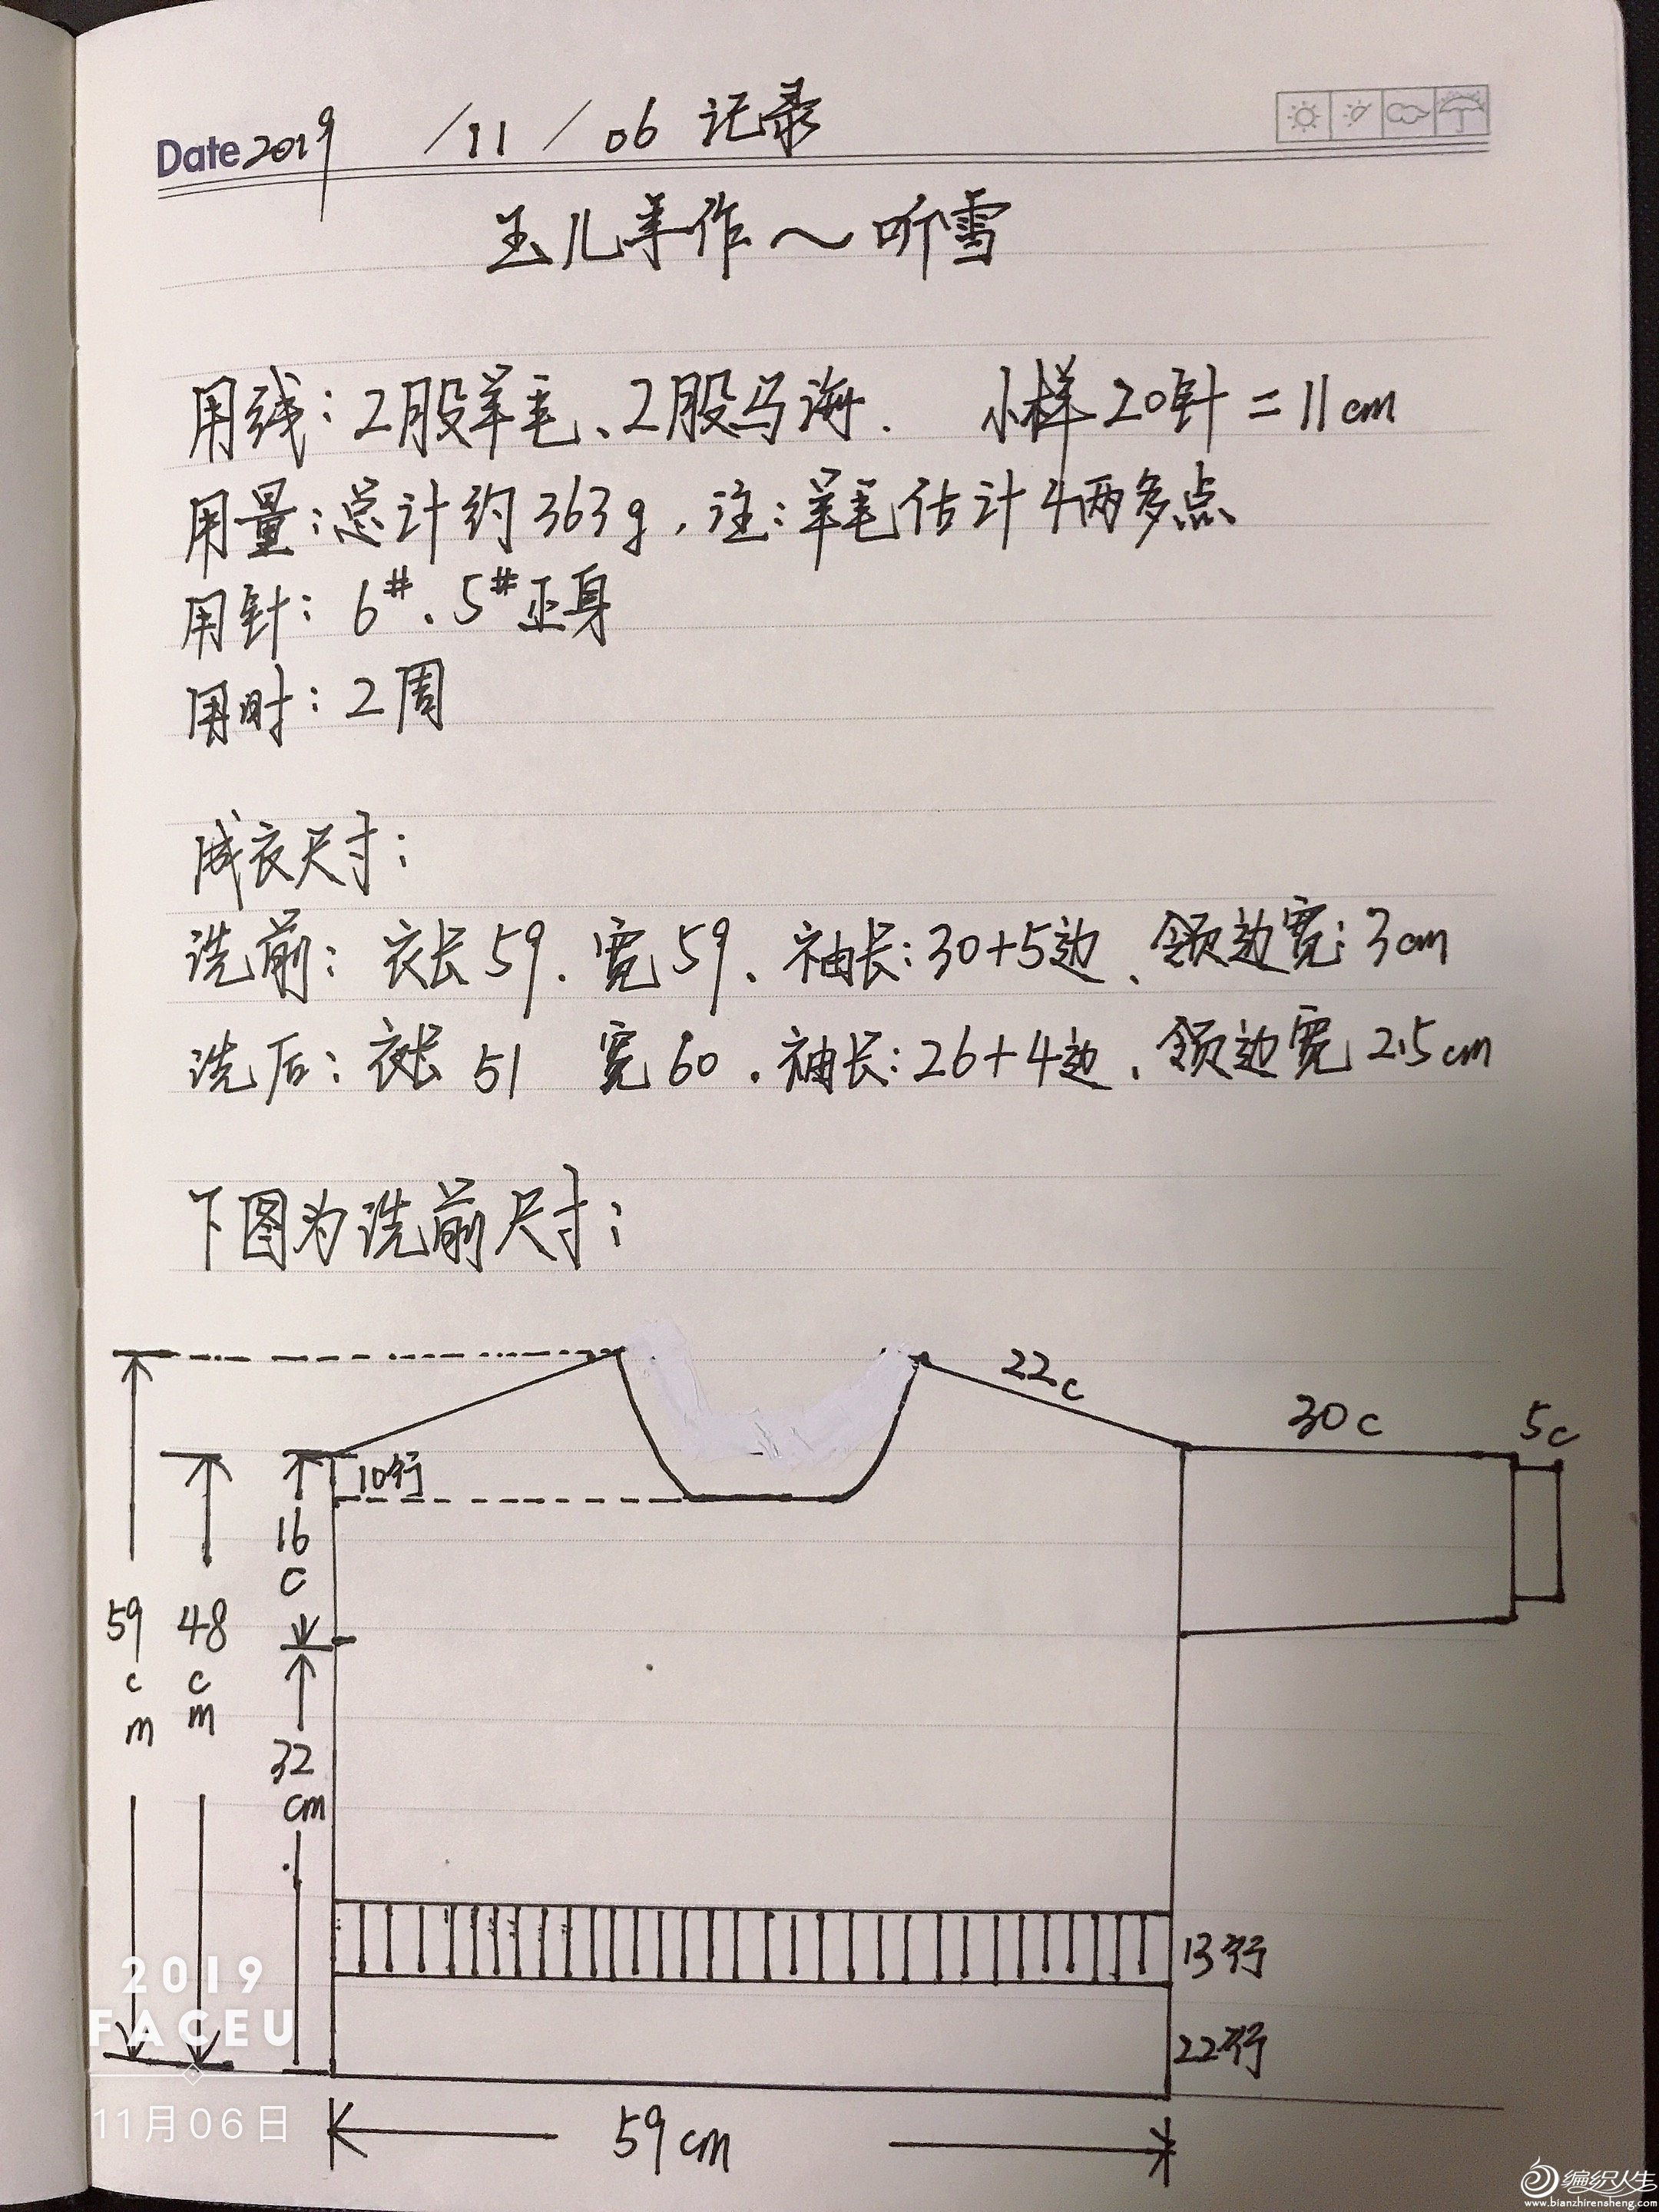 Date 2019 /11 / 06 记录
玉儿手作～听雪
用线：2股羊毛、2股马海. 小样20针=11cm
用量：总计约363g，注：羊毛估计4两多点
用针：6#、5#正身
用时：2周
成衣尺寸：
洗前：衣长59、宽59、袖长：30+5边、领边宽：3cm
洗后：衣长51 宽60、袖长：26+4边、领边宽2.5cm
下图为洗前尺寸：
22c
30c
5c
10行
16c
59cm
48cm
32cm
13行
22行
59cm
2019
FACEU
11月06日
编织人生
www.bianzhirensheng.com